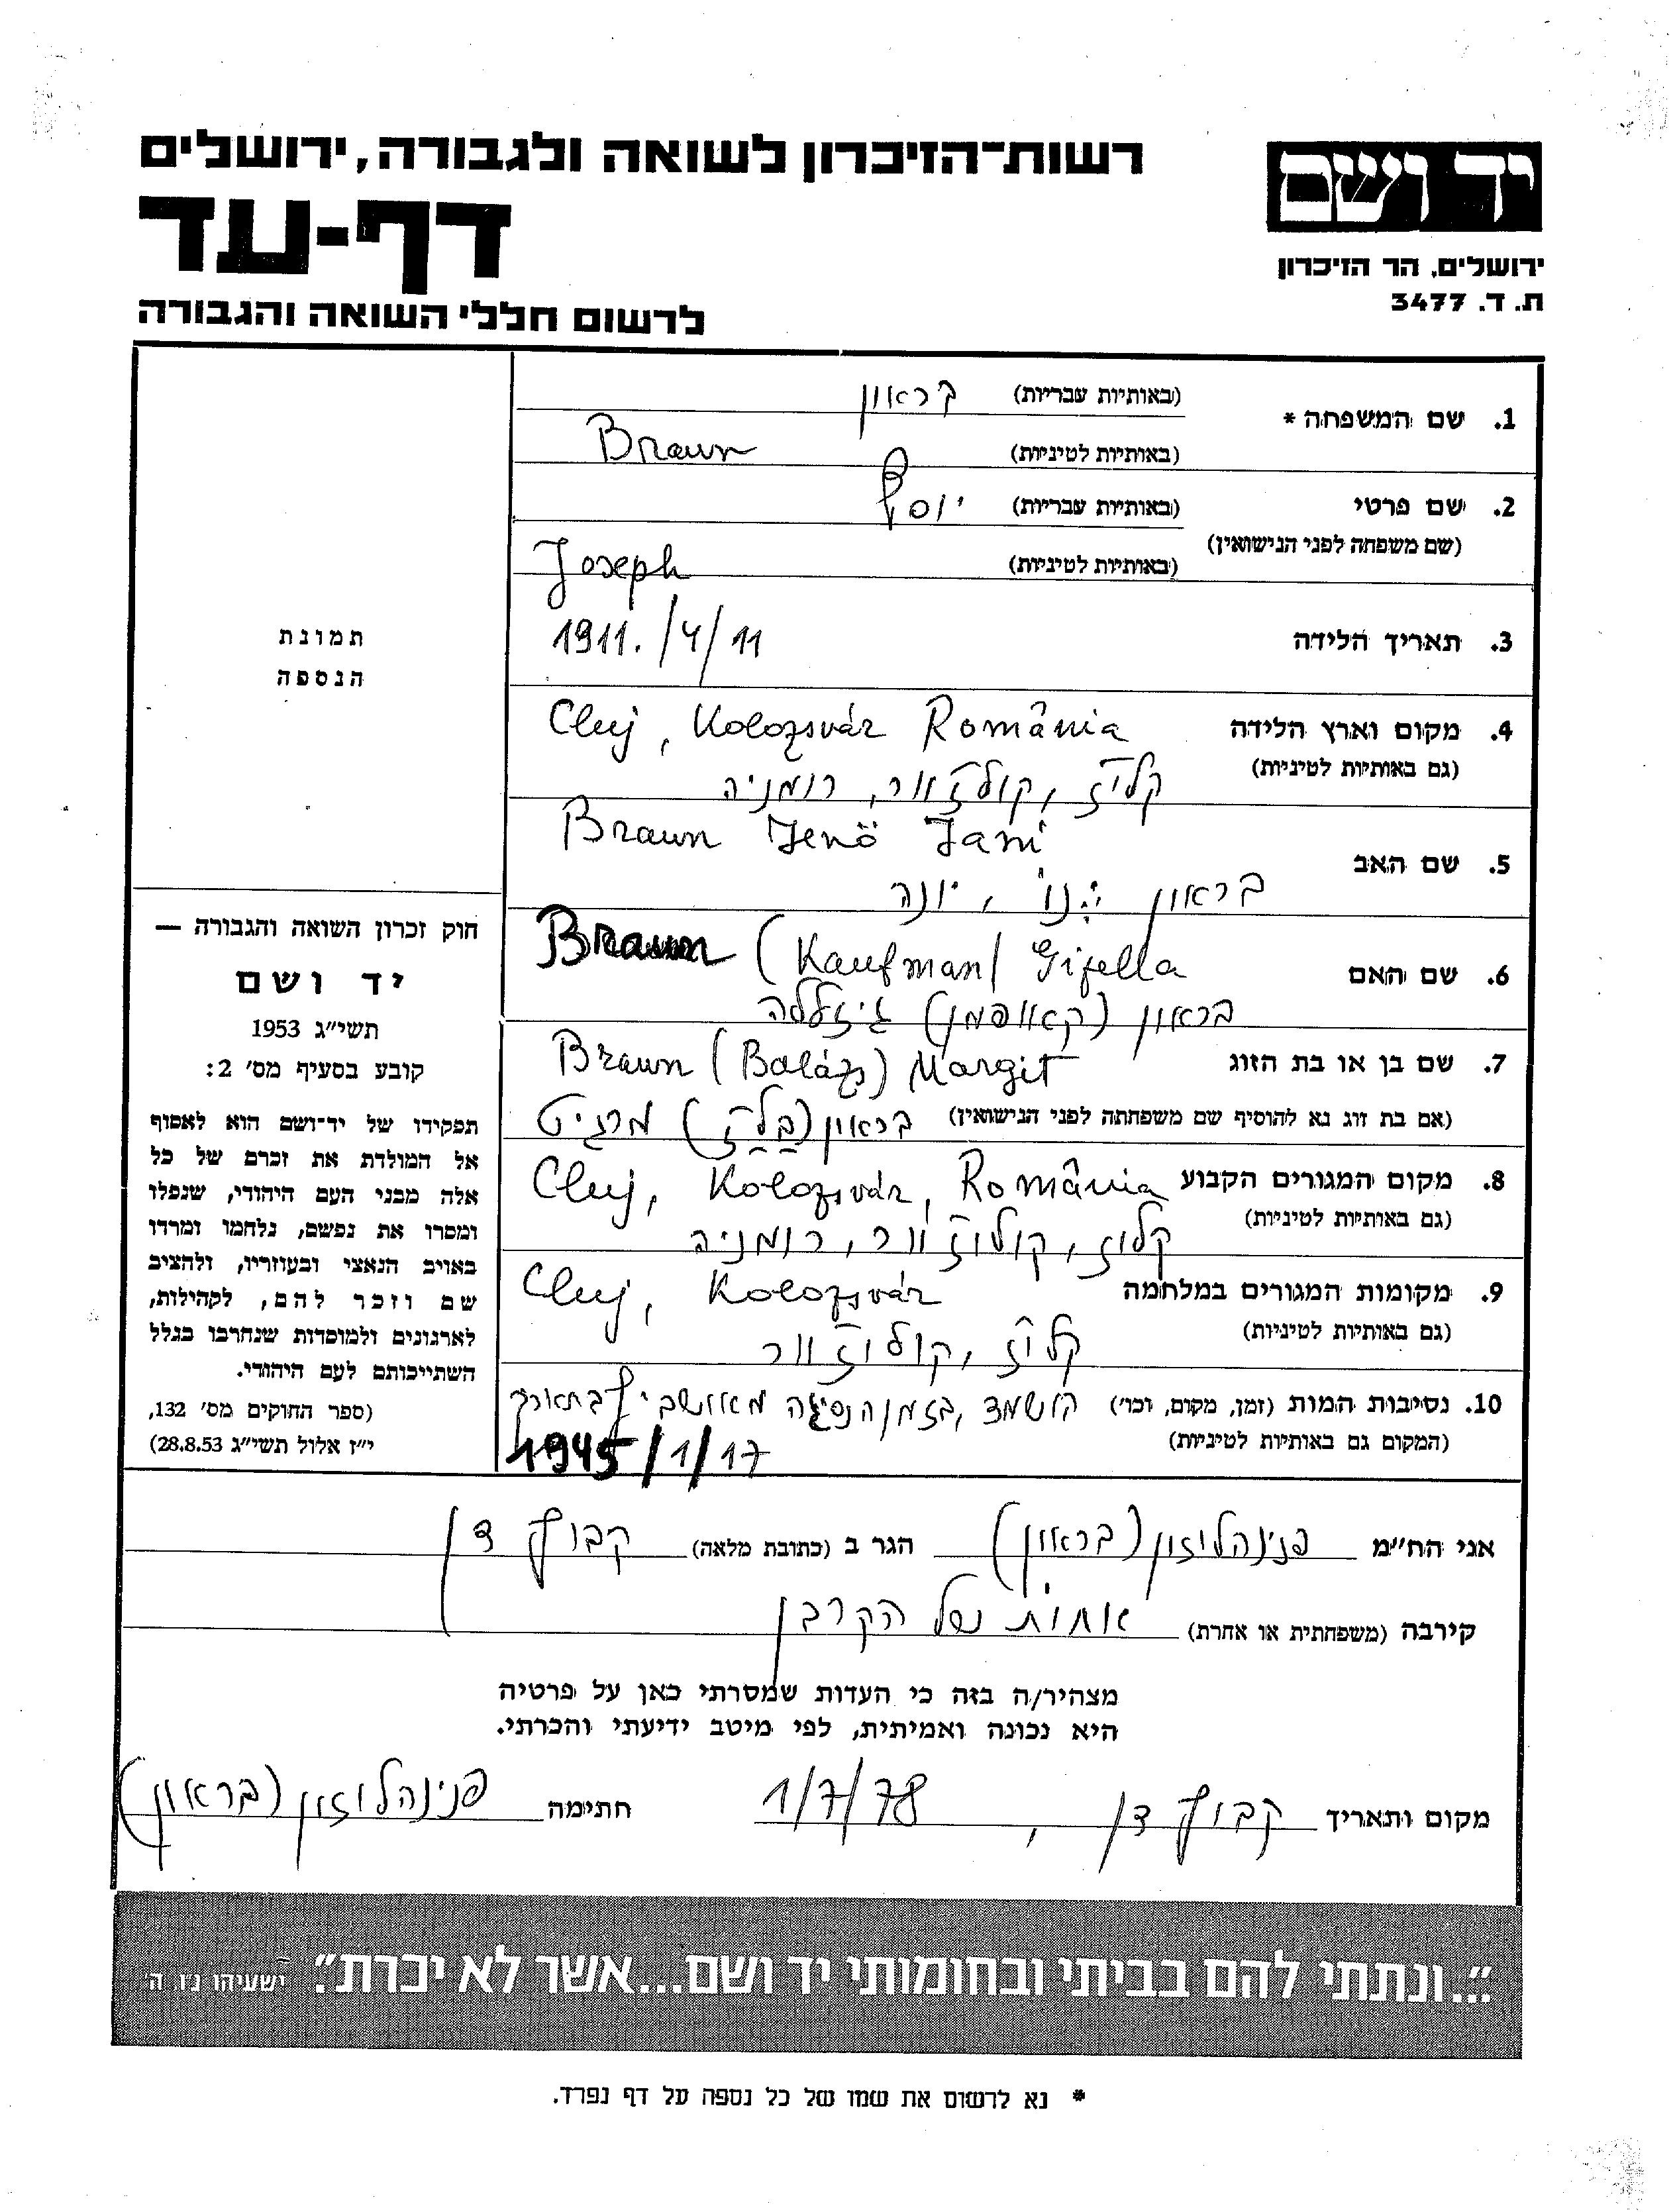 רשות־הזיכרון לשואה ולגבורה, ירושלים
יד ושם
דף-עד
ירושלים, הר הזיכרון
ת. ד. 3477
לרשום חללי השואה והגבורה
1. שם המשפחה * (באותיות עבריות) בראון
(באותיות לטיניות) Braun
2. שם פרטי (באותיות עבריות) יוסף
(שם משפחה לפני הנישואין)
(באותיות לטיניות) Joseph
3. תאריך הלידה 1911. /4/11
4. מקום וארץ הלידה Cluj, Kolozsvár România
(גם באותיות לטיניות) קלוז, קולוזוור, רומניה
5. שם האב Braun Jenö Jani
בראון ינו, יונה
6. שם האם Braun (Kaufman) Gizella
בראון (קאופמן) גיזללה
7. שם בן או בת הזוג Braun (Balázs) Margit
(אם בת זוג נא להוסיף שם משפחתה לפני הנישואין) בראון (בלז) מרגיט
8. מקום המגורים הקבוע Cluj, Kolozsvár, România
(גם באותיות לטיניות) קלוז, קולוזוור, רומניה
9. מקומות המגורים במלחמה Cluj, Kolozsvár
(גם באותיות לטיניות) קלוז, קולוזוור
10. נסיבות המות (זמן, מקום, וכו') הושמד, בזמן הנסיגה מאושביץ בתאריך
(המקום גם באותיות לטיניות) 1945/1/17
תמונת
הנספה
חוק זכרון השואה והגבורה —
יד ושם
תשי"ג 1953
קובע בסעיף מס' 2:
תפקידו של יד־ושם הוא לאסוף
אל המולדת את זכרם של כל
אלה מבני העם היהודי, שנפלו
ומסרו את נפשם, נלחמו ומרדו
באויב הנאצי ובעוזריו, ולהציב
שם וזכר להם, לקהילות,
לארגונים ולמוסדות שנחרבו בגלל
השתייכותם לעם היהודי.
(ספר החוקים מס' 132,
י"ז אלול תשי"ג 28.8.53)
אני הח"מ פנינה לוזון (בראון) הגר ב (כתובת מלאה) קבוץ דן
קירבה (משפחתית או אחרת) אחות של הקרבן
מצהיר/ה בזה כי העדות שמסרתי כאן על פרטיה
היא נכונה ואמיתית, לפי מיטב ידיעתי והכרתי.
מקום ותאריך קבוץ דן, 1/7/78 חתימה פנינה לוזון (בראון)
"...ונתתי להם בביתי ובחומותי יד ושם...אשר לא יכרת". ישעיהו נ"ו ה'
* נא לרשום את שמו של כל נספה על דף נפרד.